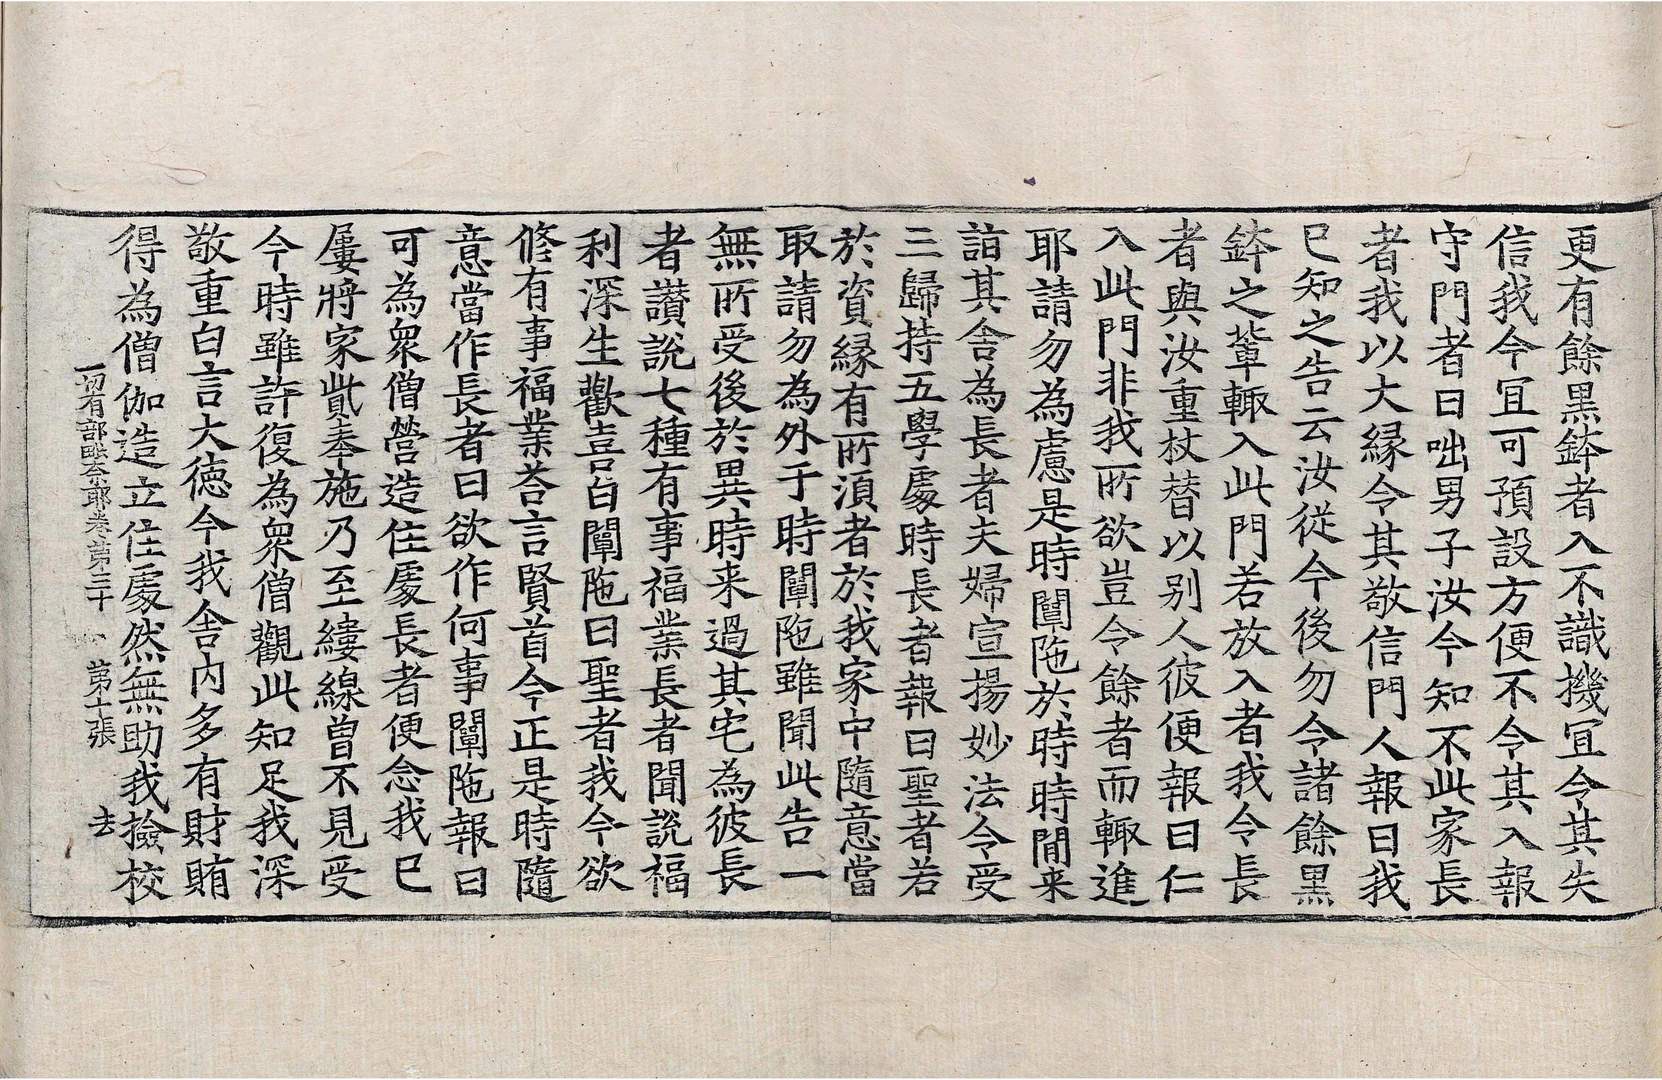 更有餘黑鉢者入不識機冝令其失
信我今冝可預設方便不令其入報
守門者曰咄男子汝今知不此家長
者我以大緣令其敬信門人報曰我
已知之告云汝從今後勿令諸餘黑
鉢之輩輙入此門若放入者我令長
者與汝重杖替以別人彼便報曰仁
入此門非我所欲豈令餘者而輙進
耶請勿為慮是時闡陁於時時間来
詣其舍為長者夫婦宣揚妙法令受
三歸持五學處時長者報曰聖者若
於資緣有所湏者於我家中隨意當
取請勿為外于時闡陁雖聞此告一
無所受後於異時来過其宅為彼長
者讃說七種有事福業長者聞說福
利深生歡喜白闡陁曰聖者我今欲
修有事福業荅言賢首今正是時隨
意當作長者曰欲作何事闡陁報曰
可為衆僧營造住處長者便念我已
屢將家貲奉施乃至縷線曾不見受
今時雖許復為衆僧觀此知足我深
敬重白言大德今我舍内多有財賄
得為僧伽造立住處然無助我撿校
一切有部毗奈耶卷第三十 第十張 去